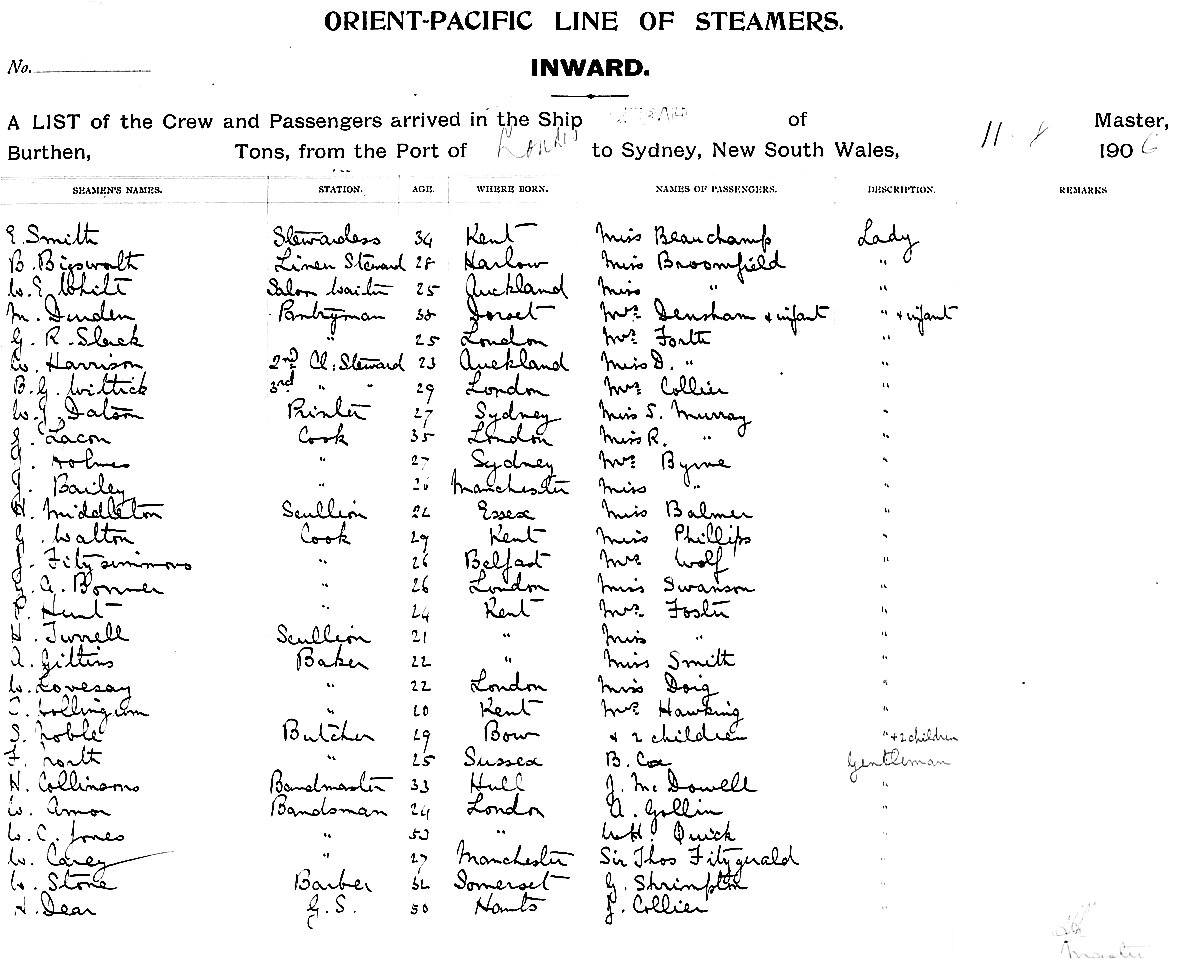 ORIENT-PACIFIC LINE OF STEAMERS.
No.
INWARD.
A LIST of the Crew and Passengers arrived in the Ship of Master,
Burthen, Tons, from the Port of London to Sydney, New South Wales, 11-8 1906
SEAMEN'S NAMES. STATION. AGE. WHERE BORN. NAMES OF PASSENGERS. DESCRIPTION. REMARKS
E. Smith Stewardess 34 Kent Miss Beauchamp Lady
B. Linen Steward 28 Harlow Miss Broomfield "
W. E. White Salon Waiter 25 Auckland Miss " "
M. Pantryman 38 Dorset Mrs Densham & infant " & infant
G. R. Slack " 25 London Mrs Forth "
W. Harrison 2nd Cl. Steward 23 Auckland Miss D. " "
B. G. Wittrick 3rd " " 29 London Mrs Collier "
W. J. Dalton Printer 27 Sydney Miss S. Murray "
J. Lacon Cook 35 London Miss R. " "
J. Holmes " 27 Sydney Mrs Byrne "
J. Bailey " 26 Manchester Miss " "
H. Middleton Scullion 22 Essex Miss Balmer "
G. Walton Cook 29 Kent Miss Phillips "
J. Fitzsimmons " 26 Belfast Mrs Wolf "
G. A. Bonner " 26 London Miss Swanson "
P. Hunt " 24 Kent Mrs Foster "
H. Turrell Scullion 21 " Miss " "
A. Gittins Baker 22 " Miss Smith "
W. Lovesay " 22 London Miss Doig "
" 20 Kent Mrs Hawking "
S. Noble Butcher 29 Bow & 2 children " & 2 children
F. North " 25 Sussex B. Cox Gentleman
H. Collinsons Bandmaster 33 Hull J. McDowell "
W. Amor Bandsman 24 London A. Gollin "
W. C. Jones " 53 " W.H. Quick "
W. Carey " 27 Manchester Sir Thos Fitzgerald "
W. Stone Barber 52 Somerset G. Shrimpton "
H. Dear G.S. 50 Hants J. Collier "
Master